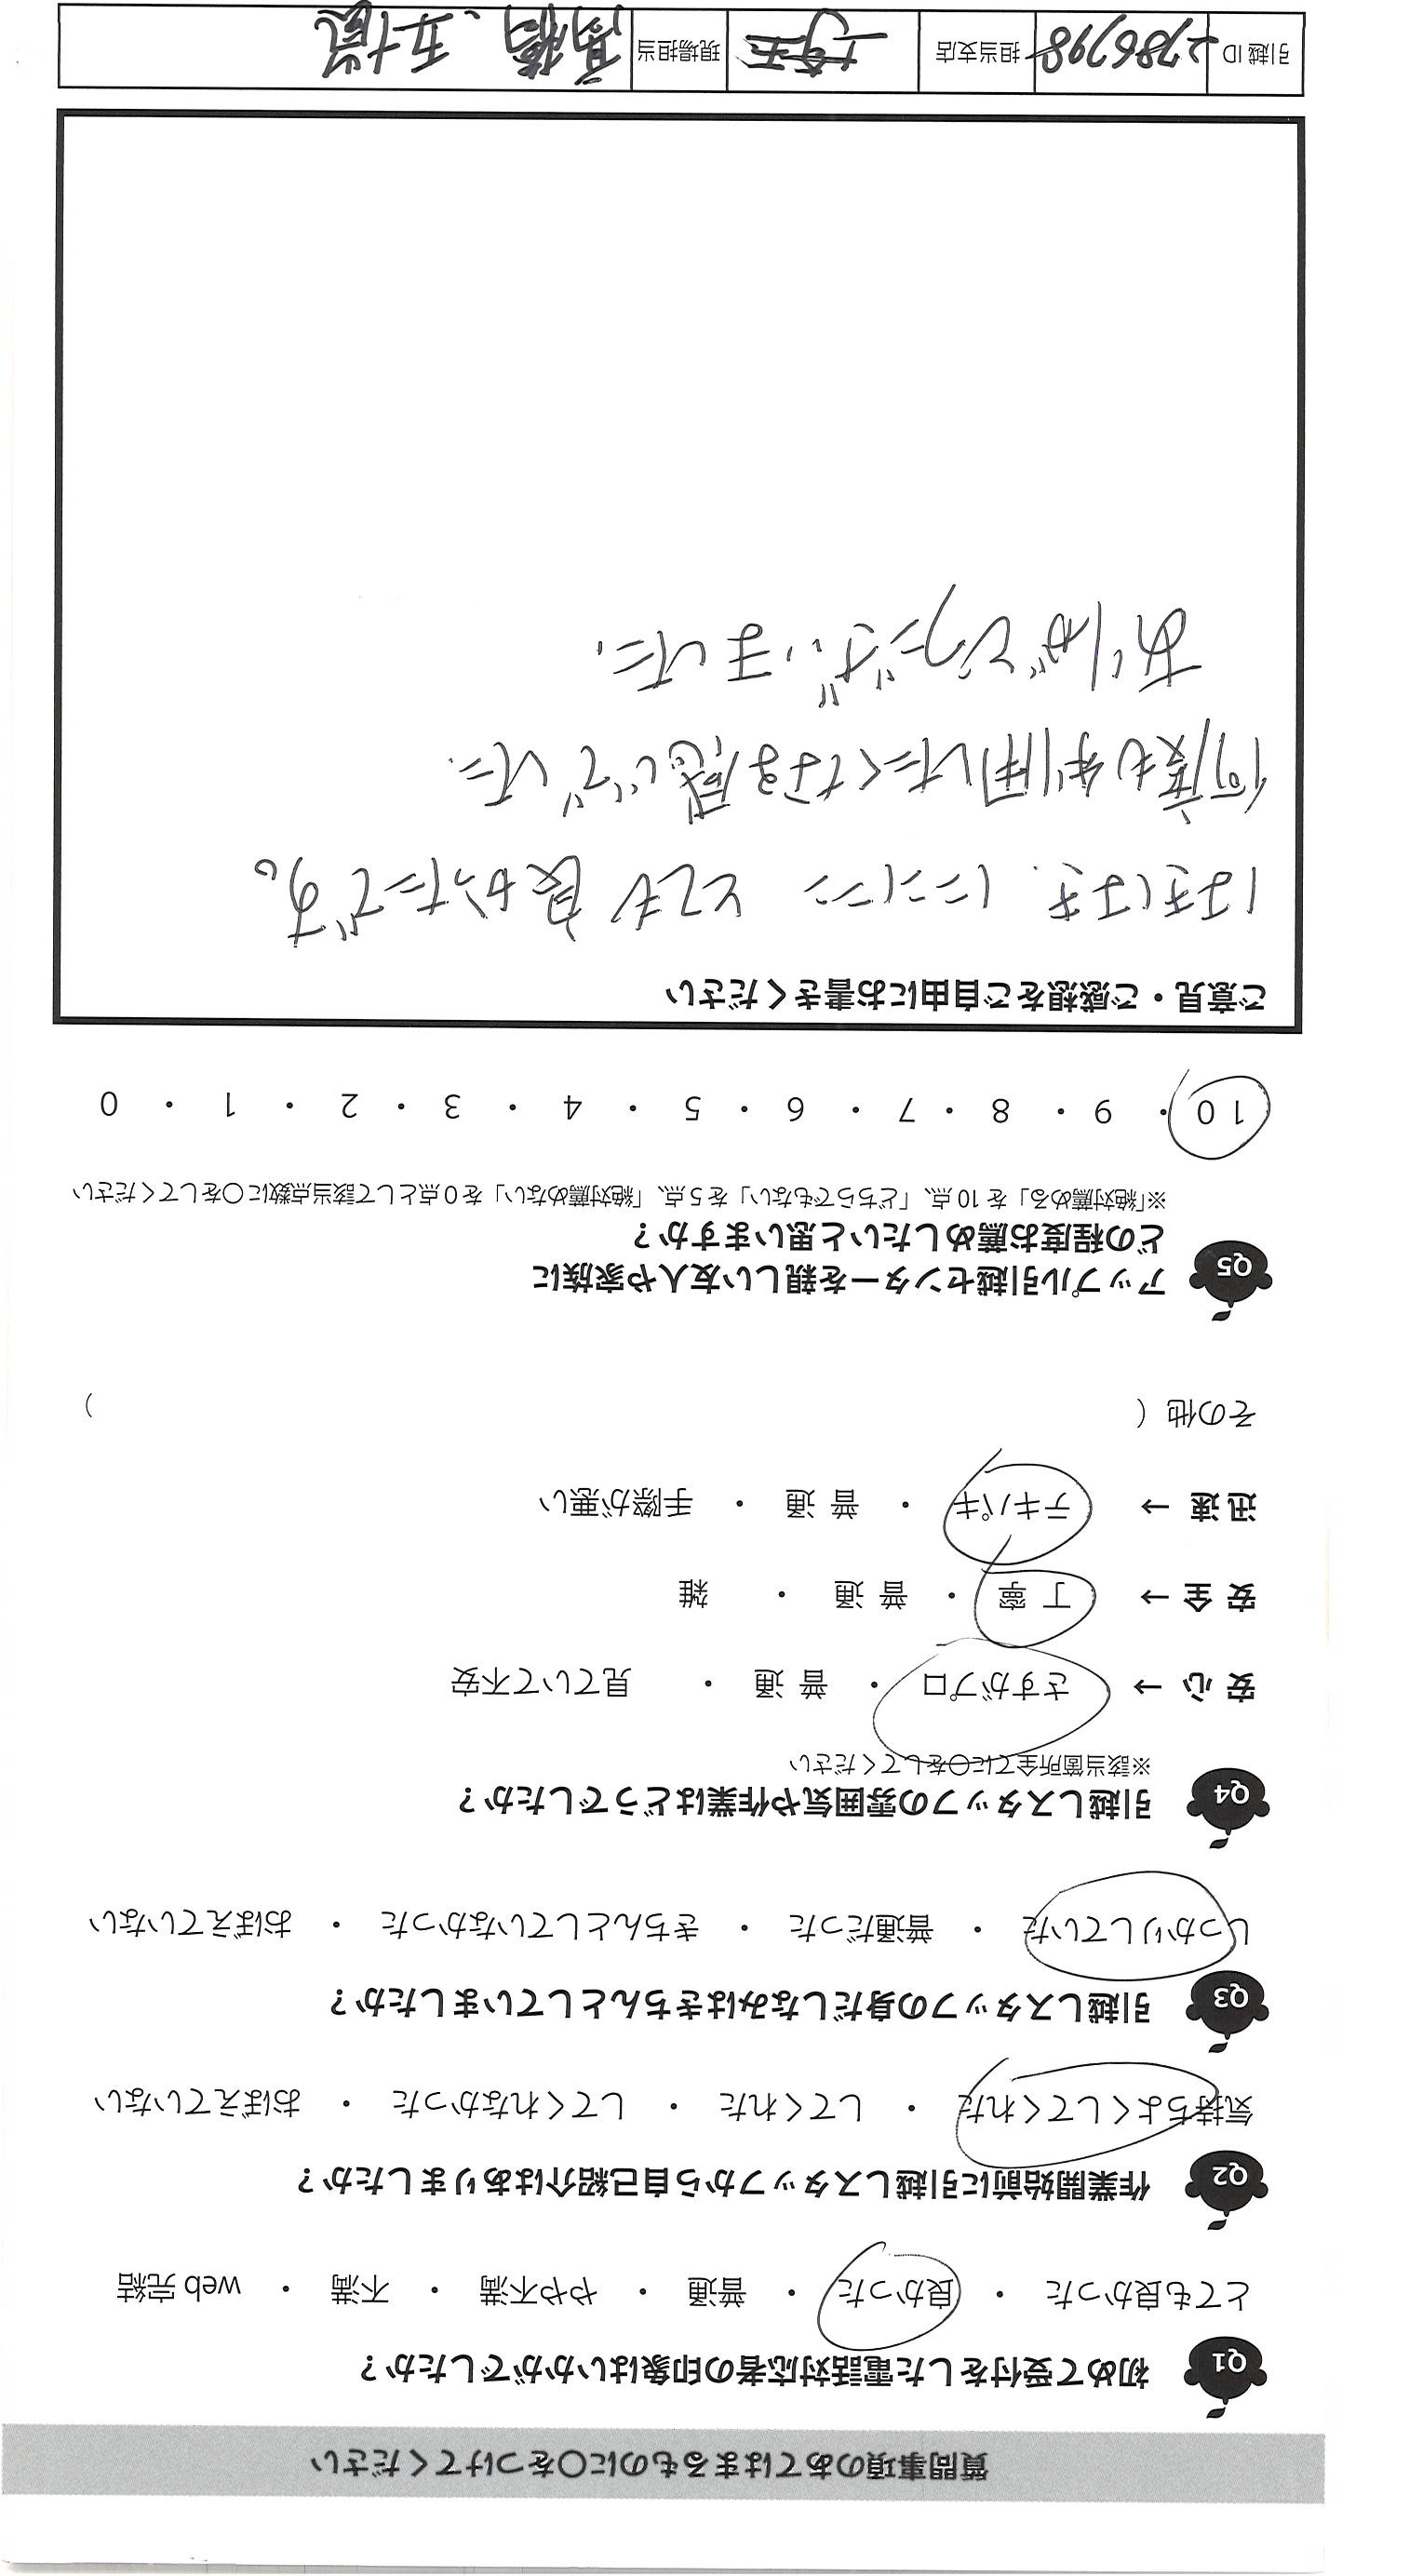 質問事項のあてはまるものに〇をつけてください
Q1 初めて受付をした電話対応者の印象はいかがでしたか？
とても良かった ・ 良かった ・ 普通 ・ やや不満 ・ 不満 ・ web 完結
Q2 作業開始前に引越しスタッフから自己紹介はありましたか？
気持ちよくしてくれた ・ してくれた ・ してくれなかった ・ おぼえていない
Q3 引越しスタッフの身だしなみはきちんとしていましたか？
しっかりしていた ・ 普通だった ・ きちんとしていなかった ・ おぼえていない
Q4 引越しスタッフの雰囲気や作業はどうでしたか？
※該当箇所全てに〇をしてください
安心 → さすがプロ ・ 普通 ・ 見ていて不安
安全 → 丁寧 ・ 普通 ・ 雑
迅速 → テキパキ ・ 普通 ・ 手際が悪い
その他（ ）
Q5 アップル引越センターを親しい友人や家族に
どの程度お薦めしたいと思いますか？
※「絶対薦める」を 10 点、「どちらでもない」を 5 点、「絶対薦めない」を 0 点として該当点数に〇をしてください
10 ・ 9 ・ 8 ・ 7 ・ 6 ・ 5 ・ 4 ・ 3 ・ 2 ・ 1 ・ 0
ご意見・ご感想をご自由にお書きください
はきはき、にこにこ とても良かったです。
何度も利用したくなる感じでした.
ありがとうございました.
引越 ID 2786798 担当支店 埼玉 現場担当 高橋、五十嵐